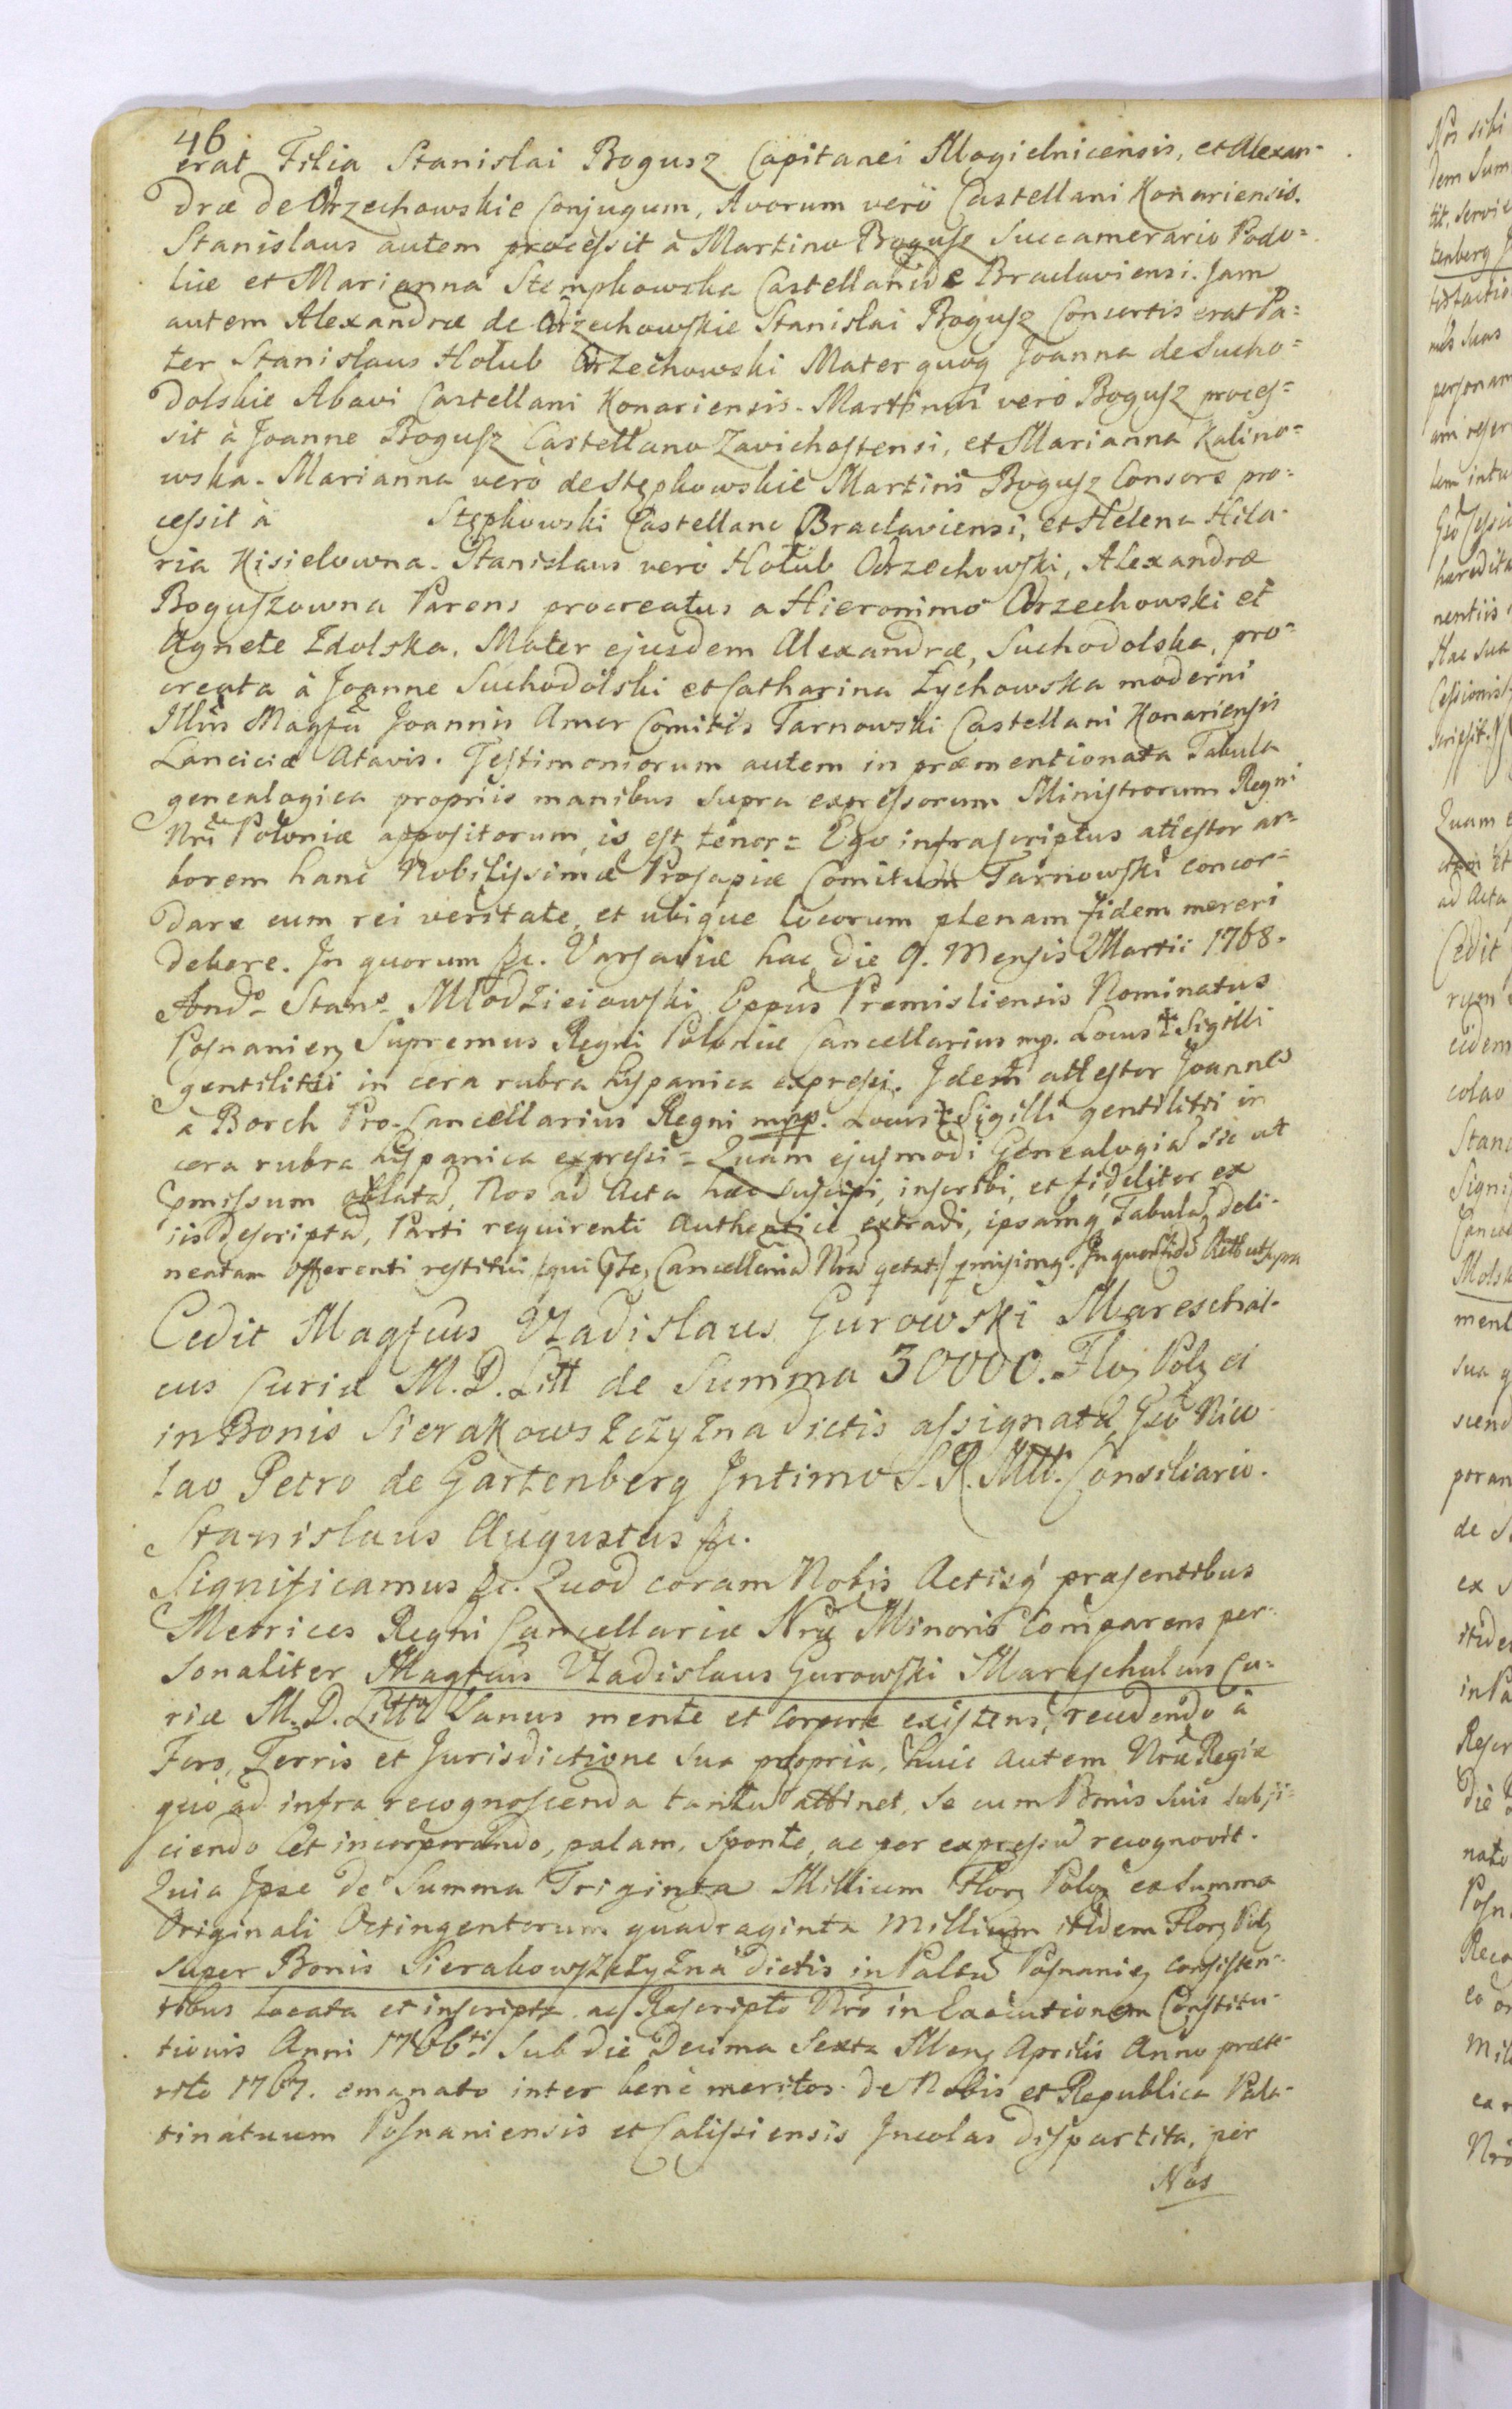 46
erat Filia Stanislai Bogusz Capitanei Mogielnicensis, et Alexan-
dræ de Orzechowskie Conjugum, Avorum verò Castellani Konariensis.
Stanislaus autem processit à Martino Bogusz Succamerario Podo=
liæ et Marianna Stempkowska Castellanide Braclaviensi. Jam
autem Alexandræ de Orzechowskie Stanislai Bogusz Consortis erat Pa=
ter Stanislaus Hołub Orzechowski Mater quoq Joanna de Sucho=
dolskie Abavi Castellani Konariensis. Martinus verò Bogusz proces=
sit à Joanne Bogusz Castellano Zavichostensi, et Marianna Kalino=
wska. Marianna verò de Stępkowskie Martini Bogusz Consors pro=
cessit à Stępkowski Castellano Braclaviensi, et Helena Hila-
ria Kisielowna. Stanislaus verò Hołub Orzechowski, Alexandræ
Boguszowna Parens procreatus a Hieronimo Orzechowski et
Agnete Zdolska. Mater ejusdem Alexandræ, Suchodolska, pro=
creata à Joanne Suchodolski et Catharina Łychowska moderni
Illũs Magfũ Joannis Amor Comitis Tarnowski Castellani Konariensis
Lanciciæ Atavis. Testimoniorum autem in præmentionata Tabula
genealogica propriis manibus supra expressorum Ministrorum Regni
Nri Poloniæ appositorum, is est tenor = Ego infrascriptus attestor ar=
borem hanc Nobilissimæ Prosapiæ Comitum Tarnowski concor=
dare cum rei veritate, et ubique locorum plenam fidem mereri
debere. In quorum &c. Varsaviæ hac die 9. Mensis Martii 1768.
Andr. Stan. Młodzieiowski Eppus Premisliensis Nominatus
Posnanien Supremus Regni Poloniæ Cancellarius mp. Locus + Sigilli
gentilitii in cera rubra hispanica expressi. Idem attestor Joannes
à Borch Pro-Cancellarius Regni mpp. Locus + Sigilli gentilitii in
cera rubra hispanica expressi = Quam ejusmodi Genealogia sic ut
pmissum oblata, Nos ad Acta hæc suscipi, inscribi, et fideliter ex
iis descripta, Parti requirenti Authentice extradi, ipsamq Tabula deli-
neatam Offerenti restitui
Cedit Magfcus Vladislaus Gurowski Mareschal-
cus Curiæ M. D. Litt de Summa 30000. Flo Pol ei
in Bonis Sierakowszczyzna dictis assignata Gso Nico
lao Petro de Gartenberg Intimo S. R. Mtt. Consiliario.
Stanislaus Augustus &c.
Significamus &c. Quod coram Nobis Actisq præsentibus
Metrices Regni Cancellariæ Nræ Minoris Comparens per-
sonaliter Magfcus Vladislaus Gurowski Mareschalcus Cu=
riæ M. D. Litt Sanus mente et corpore existens, recedendo à
Foro, Terris et Jurisdictione sua propria, huic autem Nræ Regiæ
quo ad infra recognoscenda tantu attinet, se cum Bonis suis subji-
ciendo et incorporando, palam, sponte, ac per expressu recognovit.
Quia Ipse de Summa Triginta Millium Flor Polo ex Summa
Originali Octingentorum quadraginta Millium itidem Flor Pol
super Bonis Sierakowszczyzna dictis in Paltu Posnanie consisten-
tibus locata et inscripta ac Rescripto Nro in Executionem Constitu-
tionis Anni 1766ti Sub die Decima Sexta Mens Aprilis Anno præte-
rito 1767. emanato inter bene meritos de Nobis et Republica Pala-
tinatuum Posnaniensis et Calissiensis Incolas dispartita, per
Nos